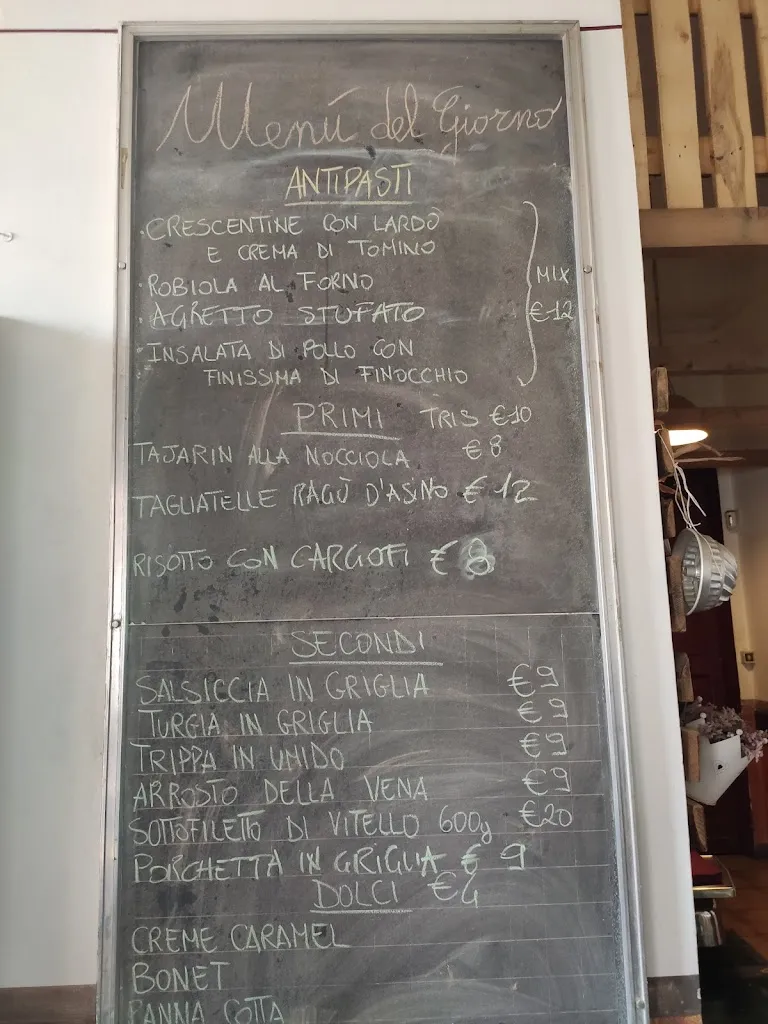 Menú del Giorno
ANTIPASTI
· CRESCENTINE CON LARDO
E CREMA DI TOMINO
· ROBIOLA AL FORNO
· AGRETTO STUFATO
· INSALATA DI POLLO CON
FINISSIMA DI FINOCCHIO
MIX
€12
PRIMI TRIS €10
TAJARIN ALLA NOCCIOLA €8
TAGLIATELLE RAGÙ D'ASINO €12
RISOTTO CON CARCIOFI €8
SECONDI
SALSICCIA IN GRIGLIA €9
TURGIA IN GRIGLIA €9
TRIPPA IN UMIDO €9
ARROSTO DELLA VENA €9
SOTTOFILETTO DI VITELLO 600g €20
PORCHETTA IN GRIGLIA € 9
DOLCI €4
CREME CARAMEL
BONET
PANNA COTTA